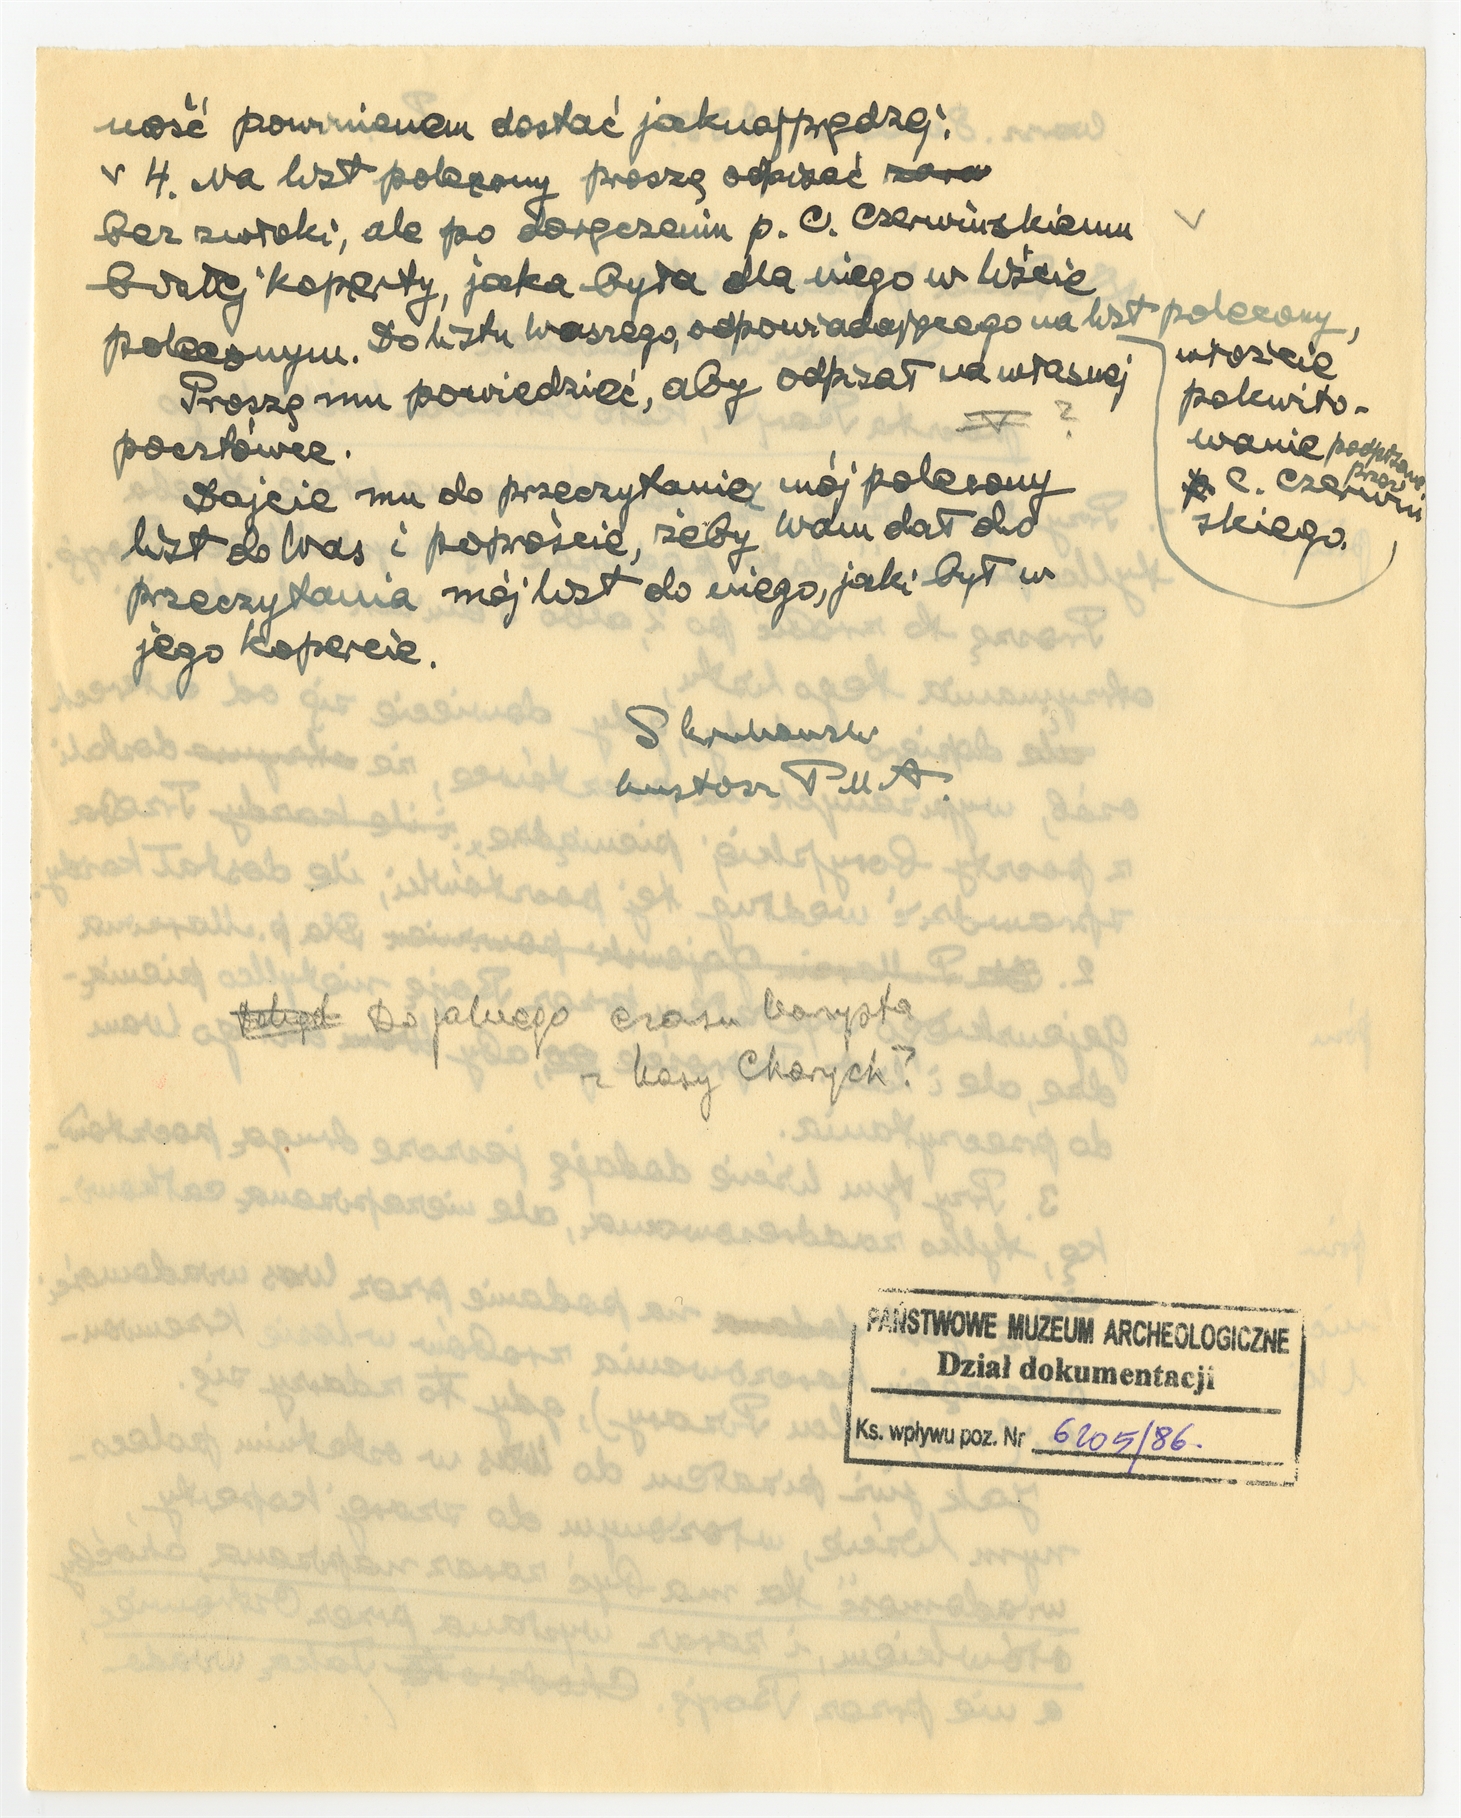 ność powinienem dostać jaknajprędzej.
v 4. Na list polecony proszę odpisać zara
bez zwłoki, ale po doręczeniu p. C. Czerwińskiemu
białej koperty, jaka była dla niego w liście
poleconym. Do listu Waszego, odpowiadającego na list polecony,
włożcie
pokwito-
wanie podpisane
przez
p. C. Czerwiń
skiego.
Proszę mu powiedzieć, aby odpisał na własnej
pocztówce.
?
Dajcie mu do przeczytania mój polecony
list do Was i poproście, żeby Wam dał do
przeczytania mój list do niego, jaki był w
jego kopercie.
S Krukowski
kustosz P M A.
Dokąd Do jakiego czasu korzysta
z Kasy Chorych?
PAŃSTWOWE MUZEUM ARCHEOLOGICZNE
Dział dokumentacji
Ks. wpływu poz. Nr 6205/86.